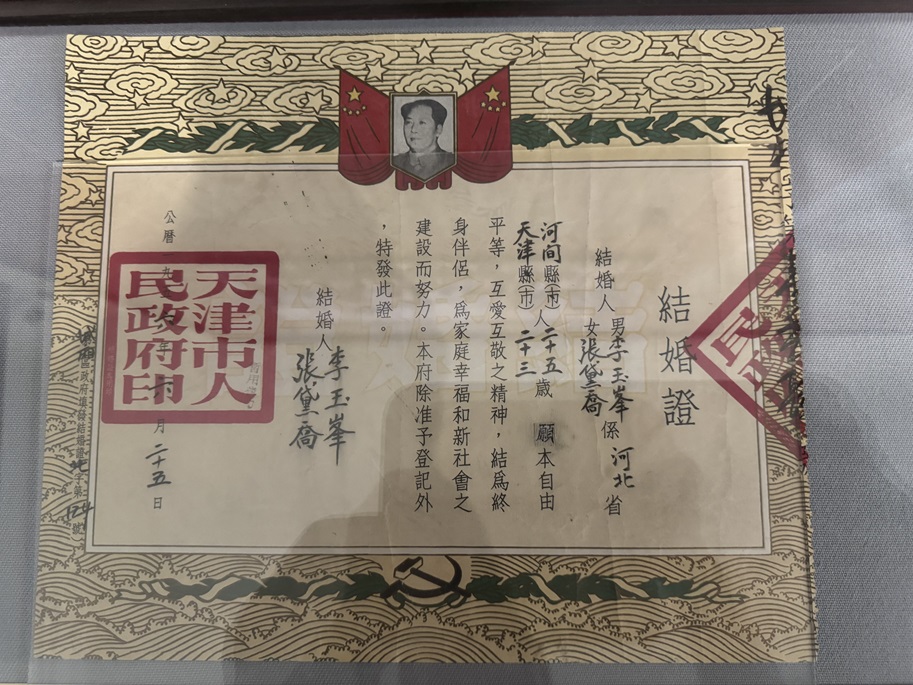 結婚證
結婚人男李玉峯係河北省
女張黛喬
河间縣(市)人二十五歲願本自由
天津縣(市)二十三
平等，互愛互敬之精神，結爲終
身伴侶，爲家庭幸福和新社會之
建設而努力。本府除准予登記外
，特發此證。
結婚人李玉峯
張黛喬
公曆一九年六月二十五日
天津市人
民政府印
區政府填發結婚證北字第124號